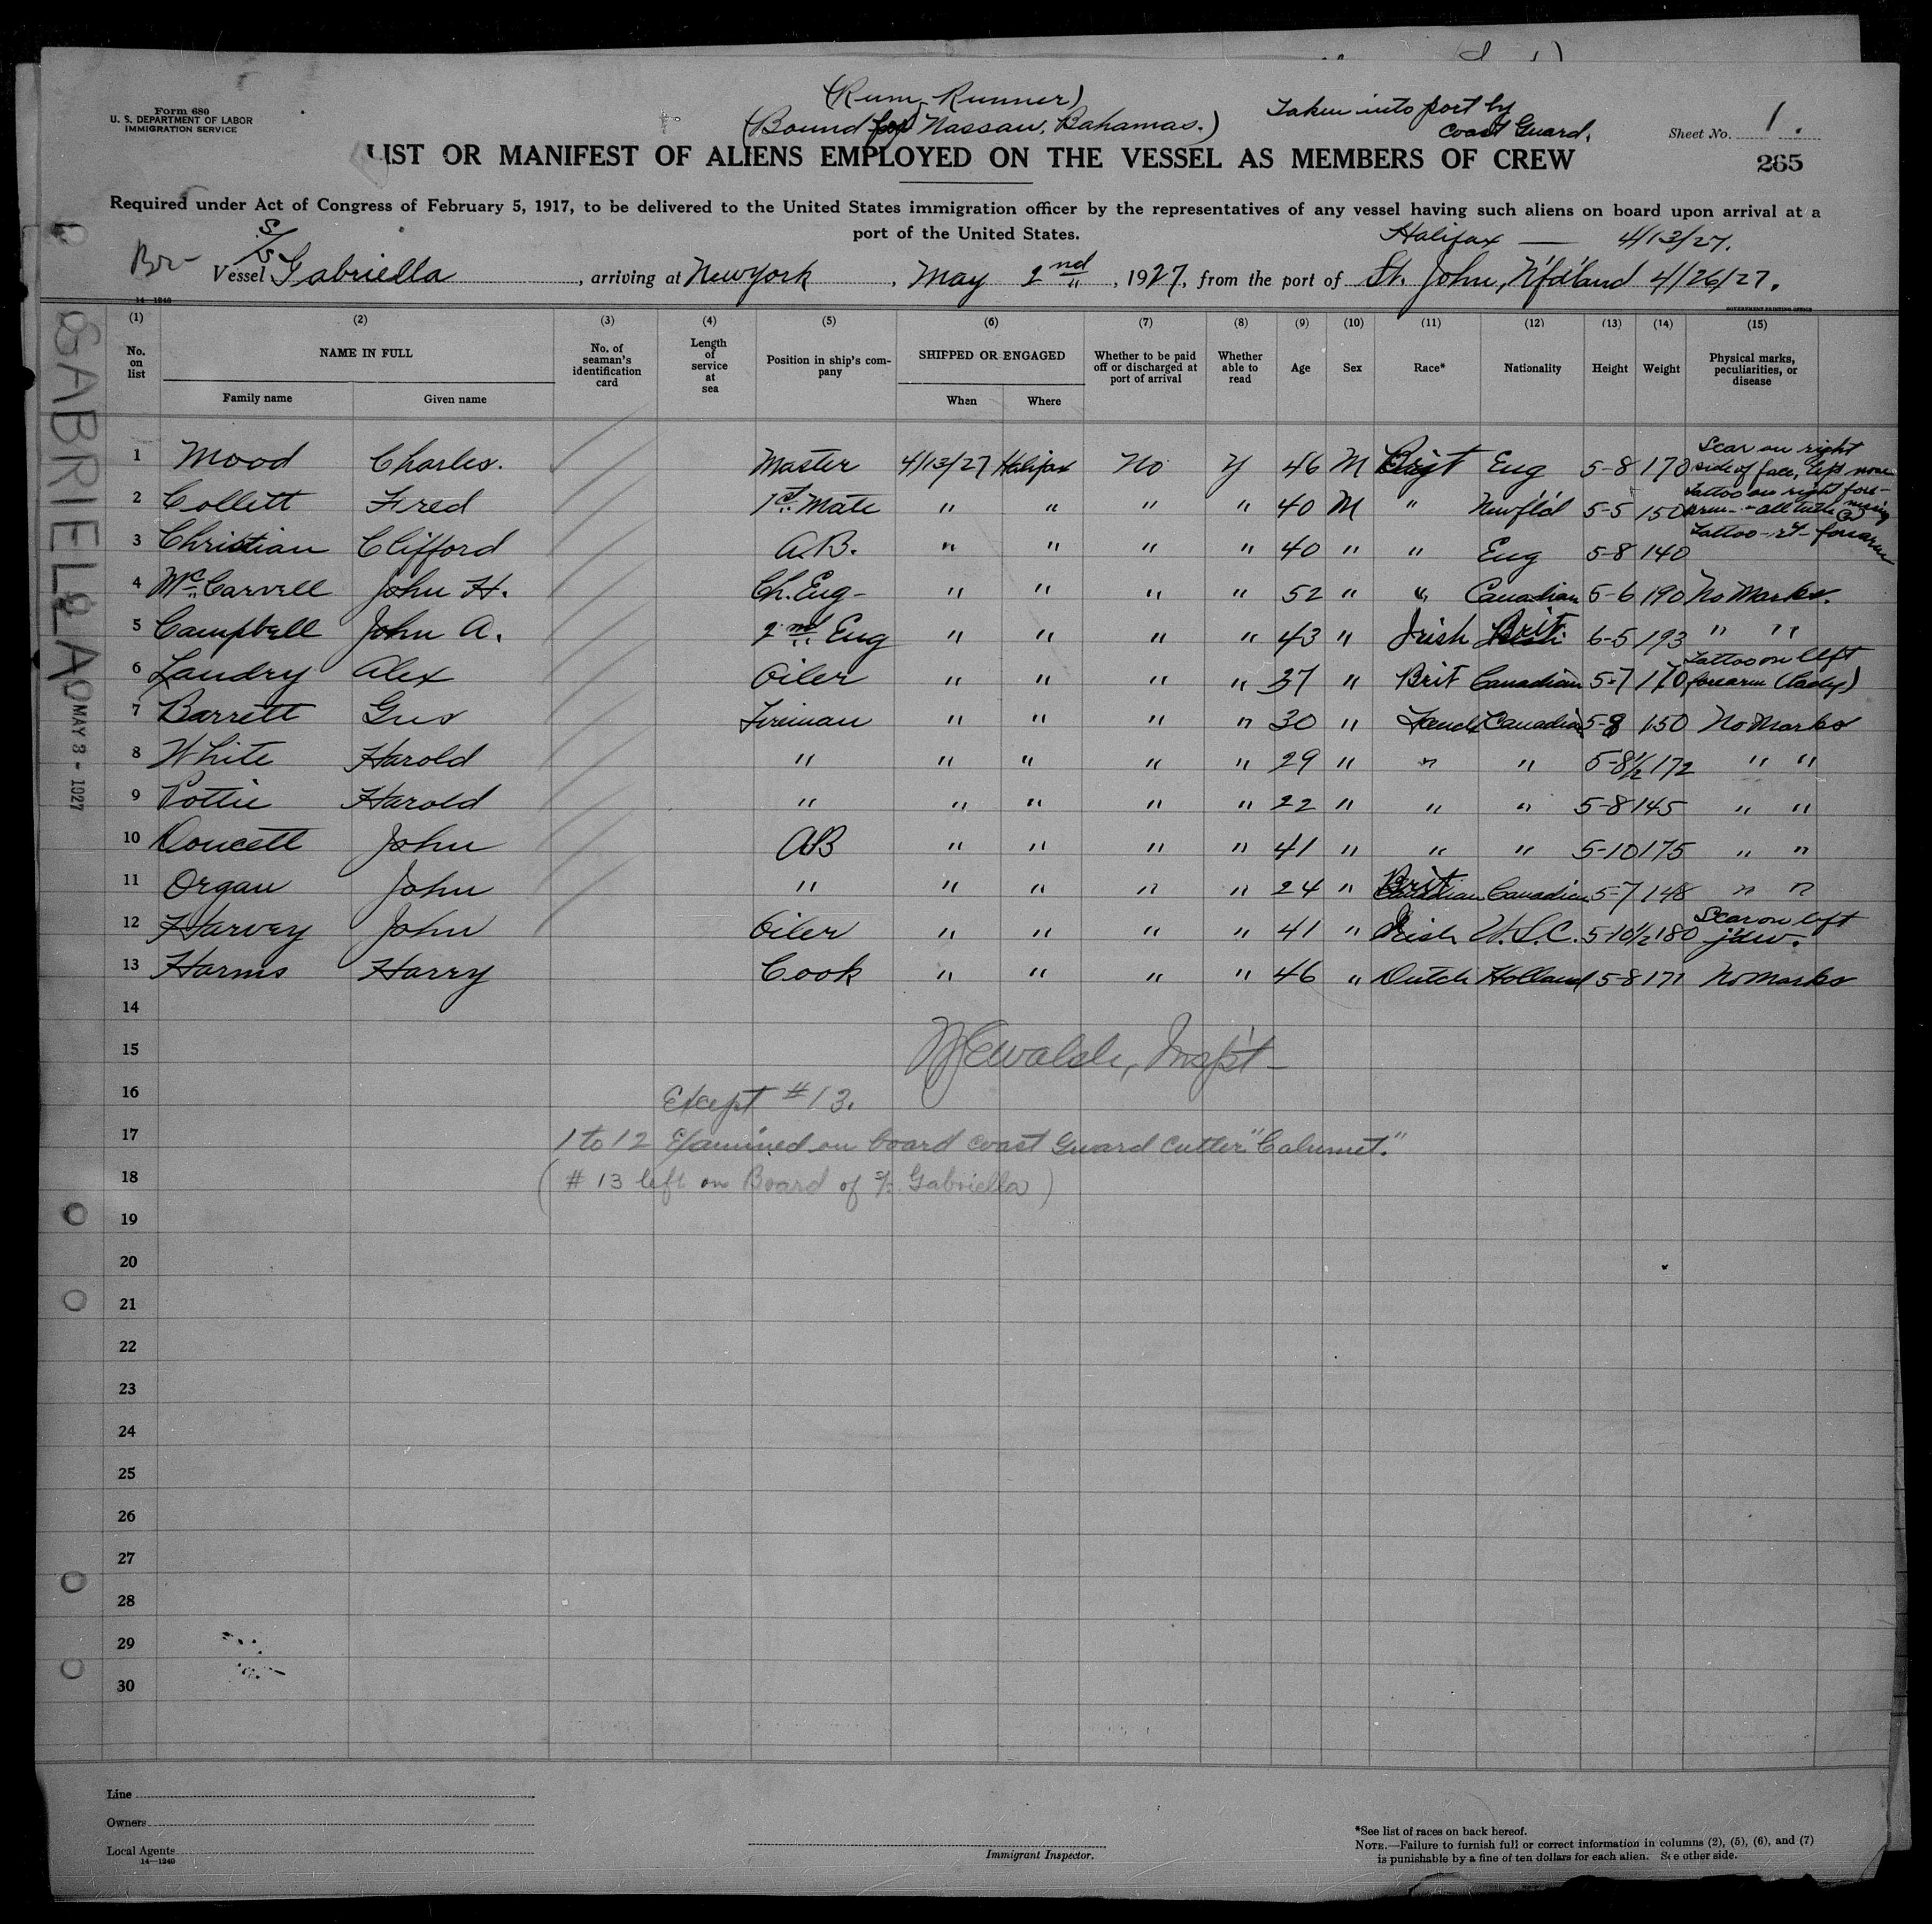 Form 680
U. S. DEPARTMENT OF LABOR
IMMIGRATION SERVICE
(Rum Runner)
(Bound for Nassau, Bahamas.)
Taken into port by
Coast Guard.
Sheet No. 1.
LIST OR MANIFEST OF ALIENS EMPLOYED ON THE VESSEL AS MEMBERS OF CREW
265
Required under Act of Congress of February 5, 1917, to be delivered to the United States immigration officer by the representatives of any vessel having such aliens on board upon arrival at a
port of the United States.
Halifax — 4/13/27.
Br- Vessel S/S Gabriella, arriving at New York, May 2nd, 1927, from the port of St. John, N'f'd'land 4/26/27.
14—1240
GOVERNMENT PRINTING OFFICE
(1) (2) (3) (4) (5) (6) (7) (8) (9) (10) (11) (12) (13) (14) (15)
No. on list
NAME IN FULL
Family name
Given name
No. of seaman's identification card
Length of service at sea
Position in ship's company
SHIPPED OR ENGAGED
When
Where
Whether to be paid off or discharged at port of arrival
Whether able to read
Age
Sex
Race*
Nationality
Height
Weight
Physical marks, peculiarities, or disease
1 Mood Charles. Master 4/13/27 Halifax No Y 46 M Brit Eng 5-8 170 Scar on right side of face, left nose
2 Collett Fred 1st Mate " " " " 40 M " Newf'l'd 5-5 150 Tattoo on right forearm - all teeth missing
3 Christian Clifford A.B. " " " " 40 " " Eng 5-8 140 Tattoo - rt - forearm
4 McCarvell John H. Ch. Eng- " " " " 52 " " Canadian 5-6 190 No Marks.
5 Campbell John A. 2nd Eng " " " " 43 " Irish Brit 6-5 193 " "
6 Landry Alex Oiler " " " " 37 " Brit Canadian 5-7 170 Tattoo on left forearm (lady)
7 Barrett Gus Fireman " " " " 30 " French Canadian 5-8 150 No Marks
8 White Harold " " " " " 29 " " " 5-8½ 172 " "
9 Pottie Harold " " " " " 22 " " " 5-8 145 " "
10 Doucett John AB " " " " 41 " " " 5-10 175 " "
11 Organ John " " " " " 24 " Brit Canadian 5-7 148 " "
12 Harvey John Oiler " " " " 41 " Irish U.S.C. 5-10½ 180 Scar on left jaw.
13 Harms Harry Cook " " " " 46 " Dutch Holland 5-8 171 No Marks
14
15 Insp't-
16 Except #13.
17 1 to 12 Examined on board Coast Guard Cutter "Calumet."
18 (#13 left on Board of S/S. Gabriella)
19
20
21
22
23
24
25
26
27
28
29
30
GABRIELLA
MAY 3 - 1927
Line
Owners
Local Agents
14—1240
Immigrant Inspector.
*See list of races on back hereof.
NOTE.—Failure to furnish full or correct information in columns (2), (5), (6), and (7)
is punishable by a fine of ten dollars for each alien. See other side.